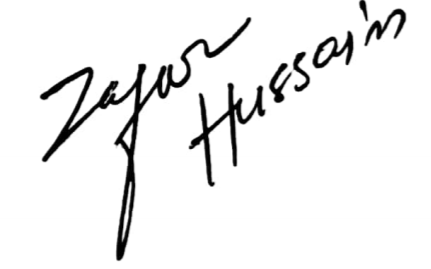 Zafar
Hussain